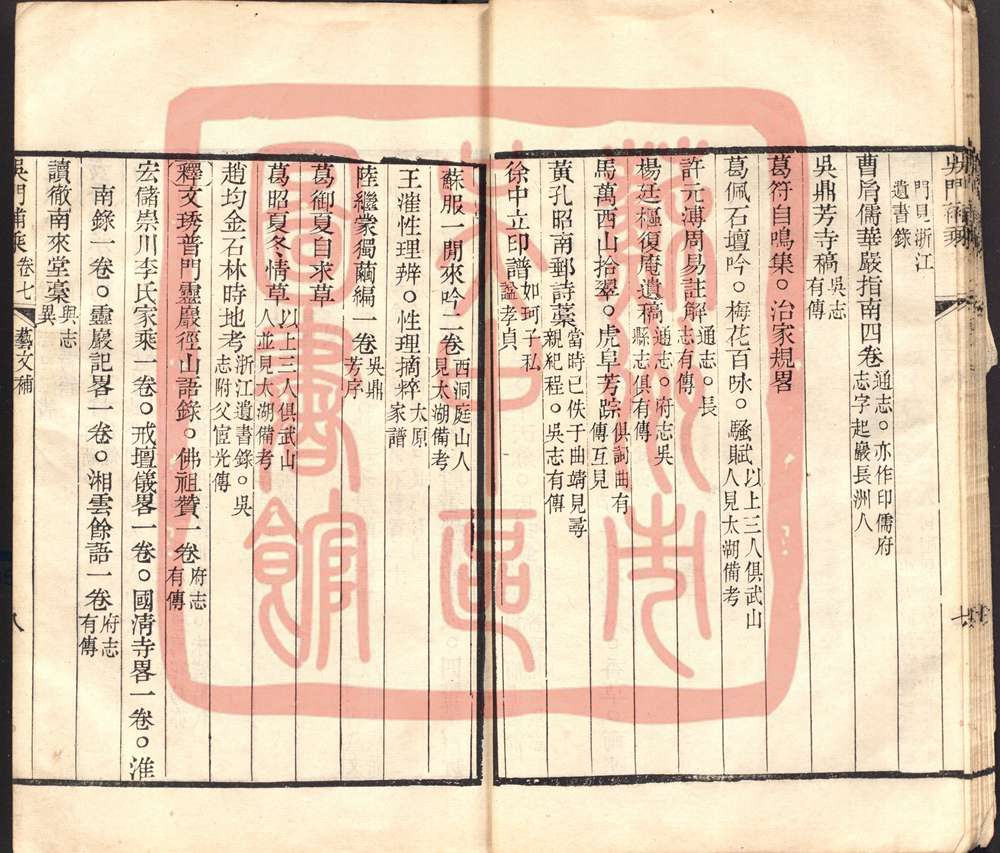 吳門補乘
門見浙江
遺書錄
曹肩儒華嚴指南四卷通志。亦作印儒府志字起巖長洲人
吳鼎芳寺稿吳志有傳
葛符自鳴集。治家規畧
葛佩石壇吟。梅花百咏。騷賦以上三人俱武山人見太湖備考
許元溥周易註解通志。長志有傳
楊廷樞復庵遺稿通志。府志吳縣志俱有傳
馬萬西山拾翠。虎阜芳踪俱詞曲有傳互見
黃孔昭南郵詩藁當時已佚于曲靖見尋親紀程。吳志有傳
徐中立印譜如珂子私諡孝貞
蘇服一閒來吟二卷西洞庭山人見太湖備考
王漼性理辨。性理摘粹太原家譜
陸繼蒙獨繭編一卷吳鼎芳序
葛御夏自求草
葛昭夏冬情草以上三人俱武山人並見太湖備考
趙均金石林時地考浙江遺書錄。吳志附父宧光傳
釋文琇普門靈巖徑山語錄。佛祖贊一卷府志有傳
宏儲崇川李氏家乘一卷。戒壇儀畧一卷。國淸寺畧一卷。淮
南錄一卷。靈巖記畧一卷。湘雲餘語一卷府志有傳
讀徹南來堂藁與志異
吳門補乘 卷七 藝文補 八